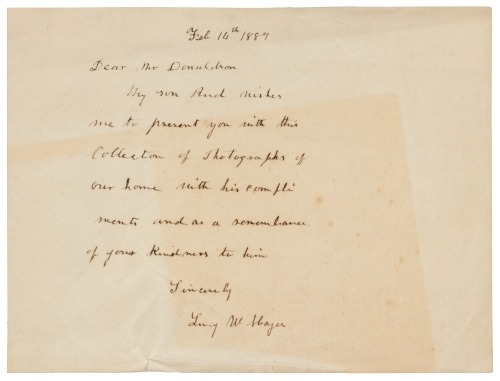 Feb 14th 1889
Dear Mr Donaldson
My son Rud wishes
me to present you with this
Collection of Photographs of
our home with his compli
ments and as a remembrance
of your kindness to him
Sincerely
Lucy W